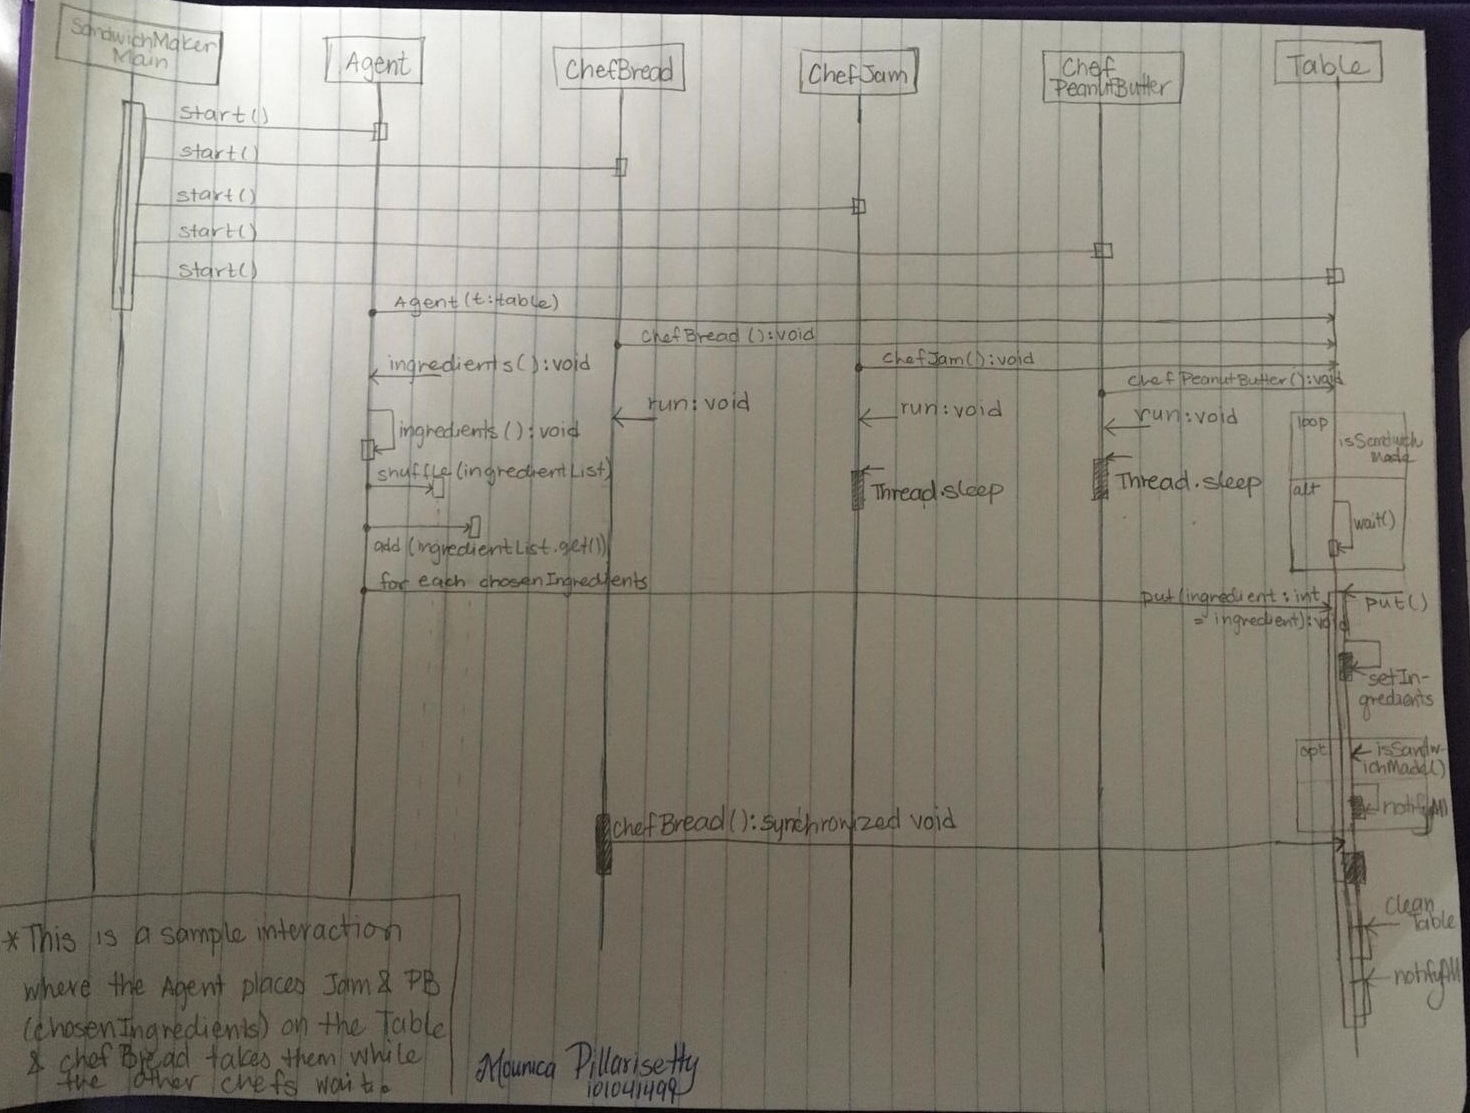 SandwichMaker
Main
Agent
ChefBread
ChefJam
Chef
PeanutButter
Table
start()
start()
start()
start()
start()
Agent(t:table)
chefBread():void
chefJam():void
chefPeanutButter():void
ingredients():void
run:void
run:void
run:void
loop
isSandwich
Made
ingredients():void
shuffle(ingredientList)
Thread.sleep
Thread.sleep
alt
wait()
add(ingredientList.get())
for each chosenIngredients
put(ingredient:int
= ingredient):void
put()
setIn-
gredients
opt
isSandw-
ichMade()
notifyAll
chefBread():synchronized void
clean
Table
notifyAll
*This is a sample interaction
where the Agent places Jam & PB
(chosenIngredients) on the Table
& chef Bread takes them while
the other chefs wait.
Mounica Pillarisetty
101041499